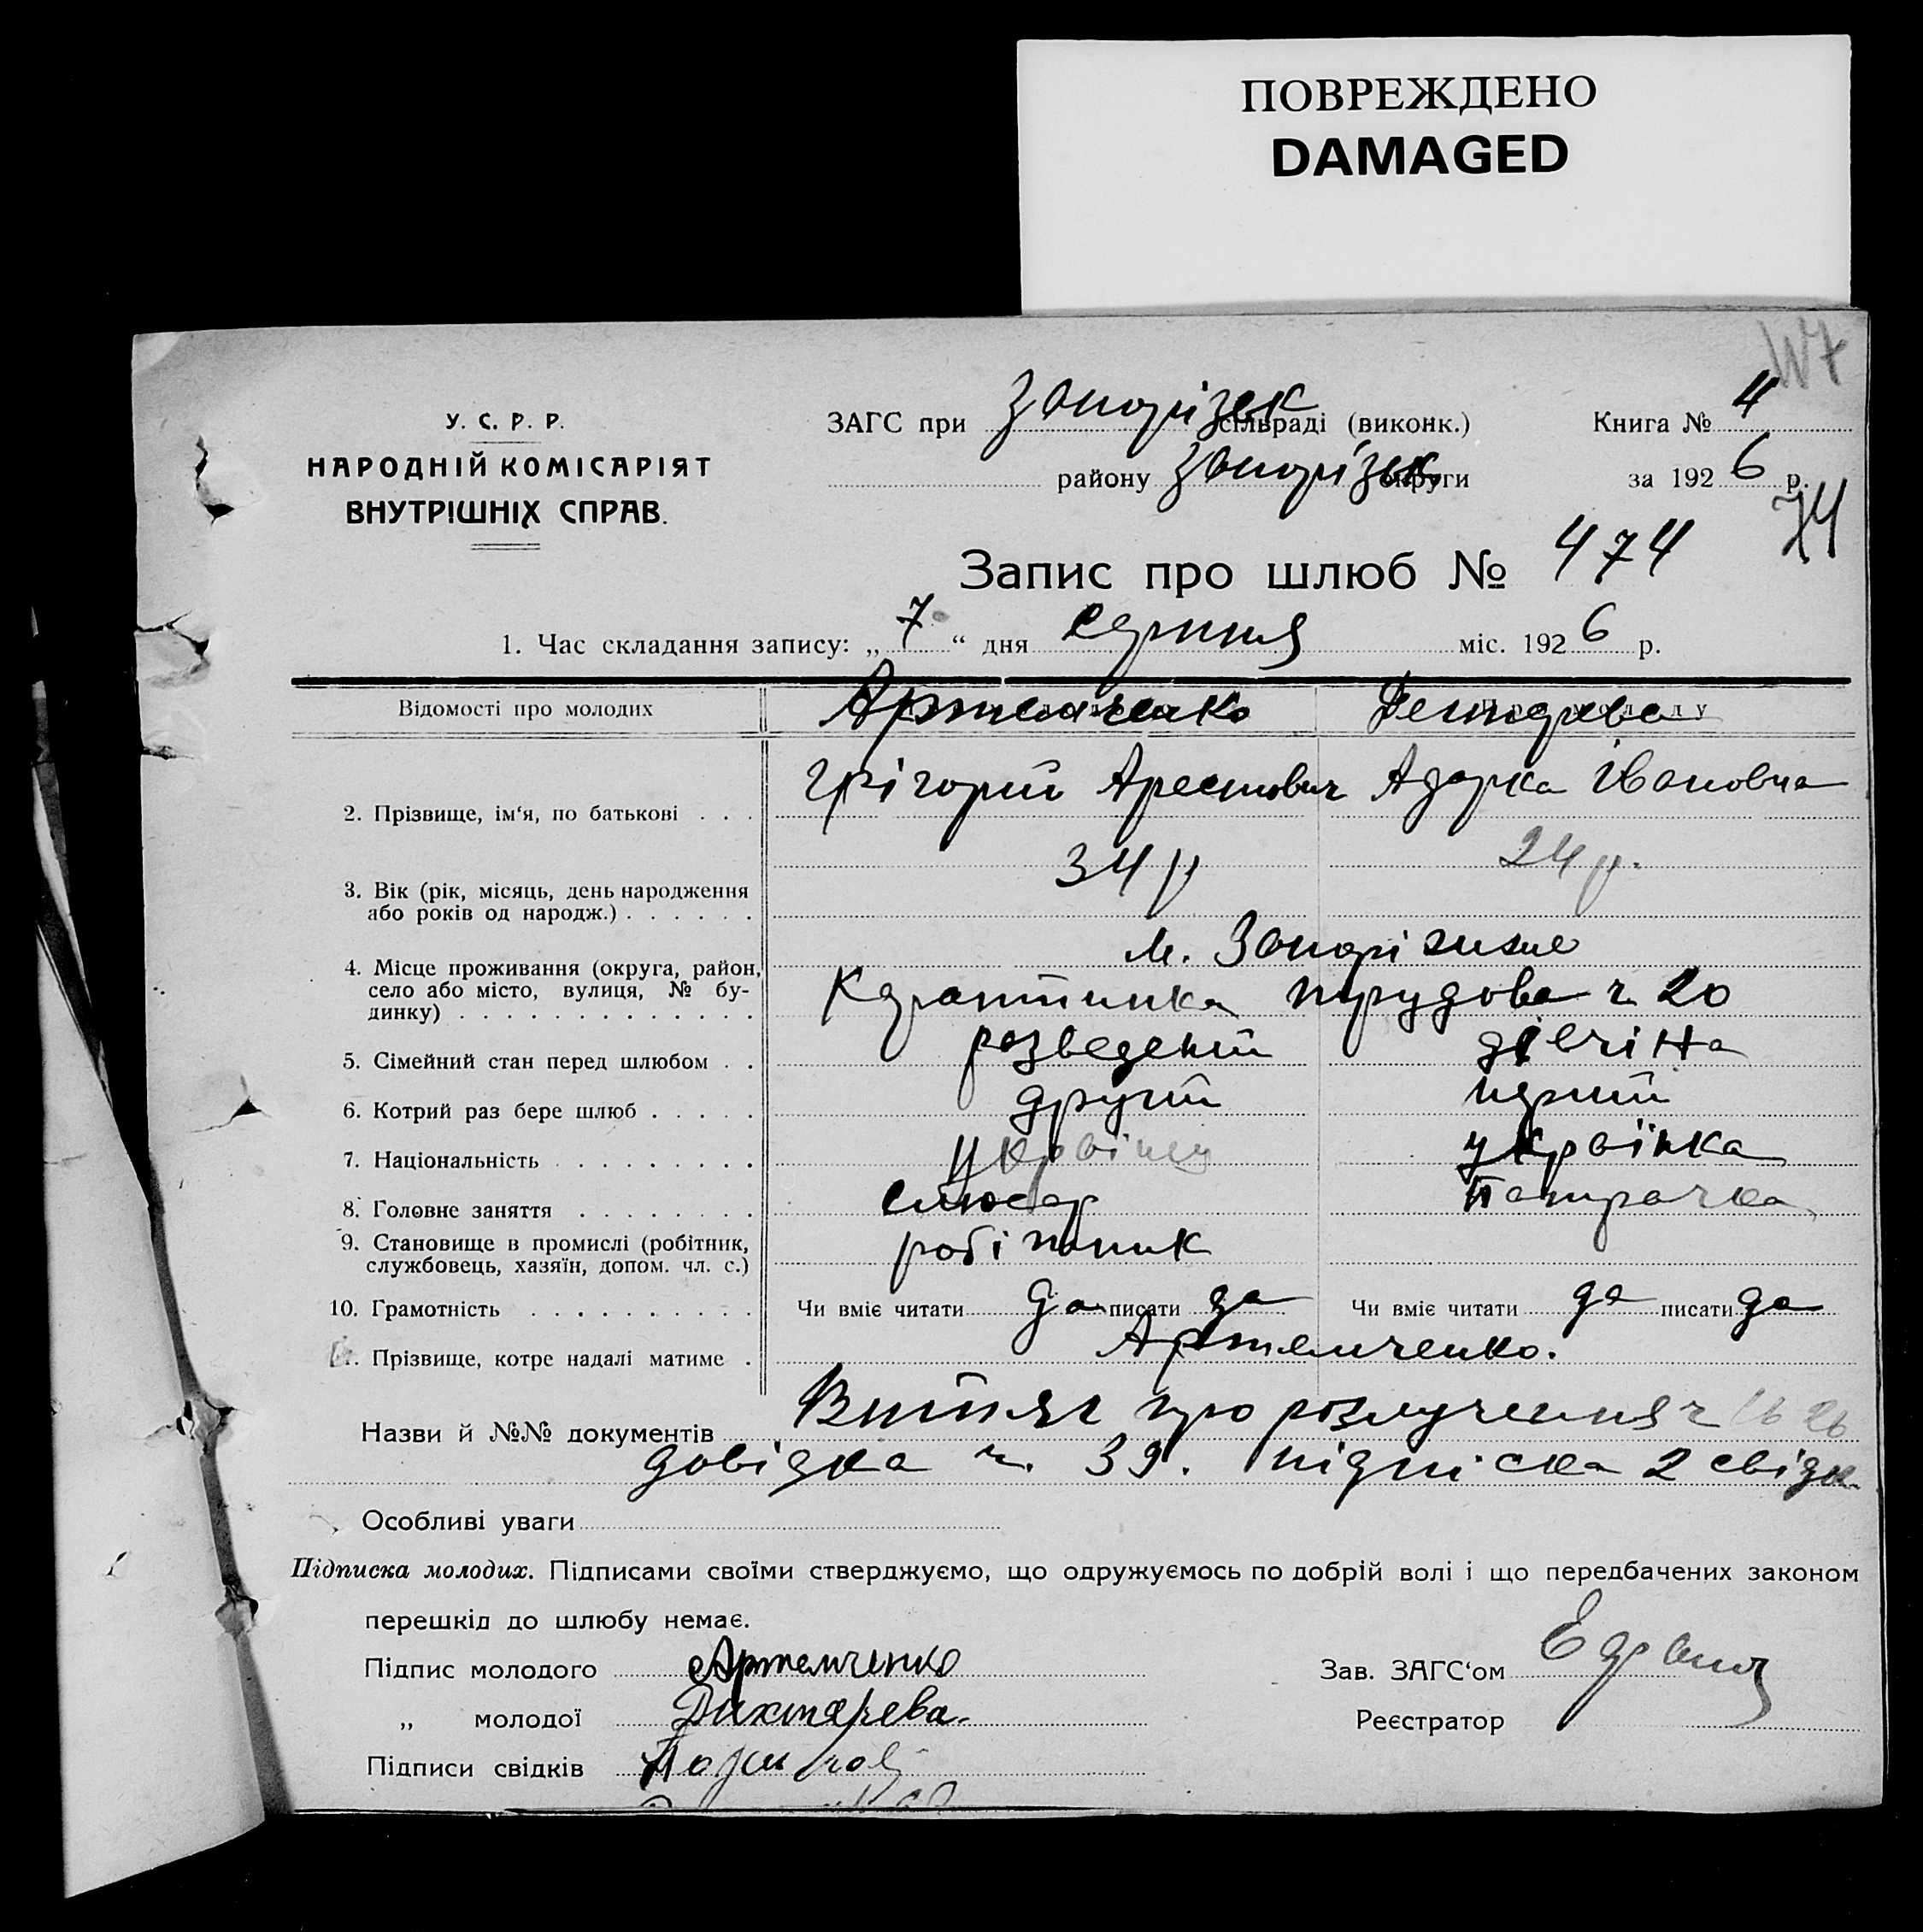 ПОВРЕЖДЕНО
DAMAGED
У. С. Р. Р.
НАРОДНІЙ КОМІСАРІЯТ
ВНУТРІШНІХ СПРАВ.
ЗАГС при Запорізьк сільраді (виконк.) Книга № 4
району Запорізьк округи за 1926 р.
74
Запис про шлюб № 474
1. Час складання запису: „7“ дня серпня міс. 1926 р.
Відомості про молодих Артемченко
2. Прізвище, ім‘я, по батькові . . . Грігорій Арестович Адарка Івановна
3. Вік (рік, місяць, день народження 34 р 24 р.
або років од народж.) . . . . . .
4. Місце проживання (округа, район, м. Запоріжже
село або місто, вулиця, № бу-
динку) . . . . . . . . . . . . . трудова ч 20
5. Сімейний стан перед шлюбом . . розведений дівчіна
6. Котрий раз бере шлюб . . . . . другий перший
7. Національність . . . . . . . . . українец українка
8. Головне заняття . . . . . . . . слюсар
9. Становище в промислі (робітник, робітник
службовець, хазяїн, допом. чл. с.)
10. Грамотність . . . . . . . . . . Чи вміє читати да писати да Чи вміє читати да писати да
11. Прізвище, котре надалі матиме . Артемченко.
Назви й №№ документів Витяг про розлучення ч
довідка ч. 39. підпіска 2 свідк.
Особливі уваги
Підписка молодих. Підписами своїми стверджуємо, що одружуємось по добрій волі і що передбачених законом
перешкід до шлюбу немає.
Підпис молодого Артемченко Зав. ЗАГС‘ом
„ молодої Дихтярева. Реєстратор
Підписи свідків